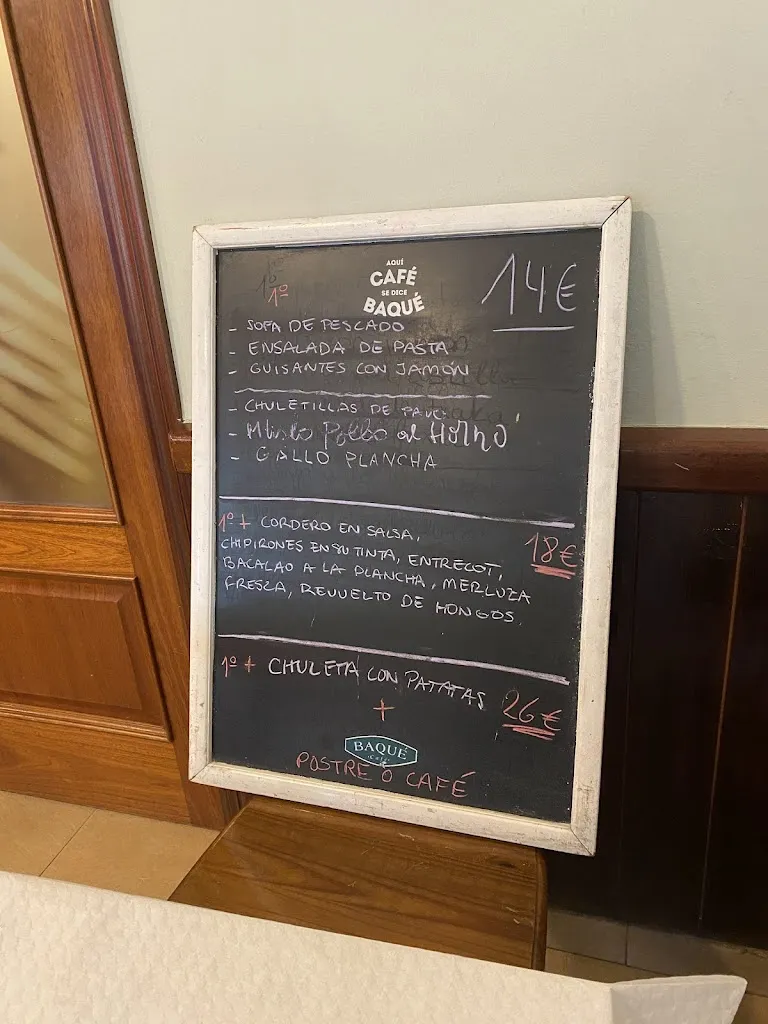 AQUÍ
CAFÉ
SE DICE
BAQUÉ
14€
1º
- SOFA DE PESCADO
- ENSALADA DE PASTA
- GUISANTES CON JAMÓN
- CHULETILLAS DE PAVO
- Muslo Pollo al Horno
- GALLO PLANCHA
1º + CORDERO EN SALSA,
CHIPIRONES EN SU TINTA, ENTRECOT,
BACALAO A LA PLANCHA, MERLUZA
FRESCA, REVUELTO DE HONGOS.
18€
1º + CHULETA CON PATATAS
26€
+
BAQUÉ
Café
POSTRE O CAFÉ